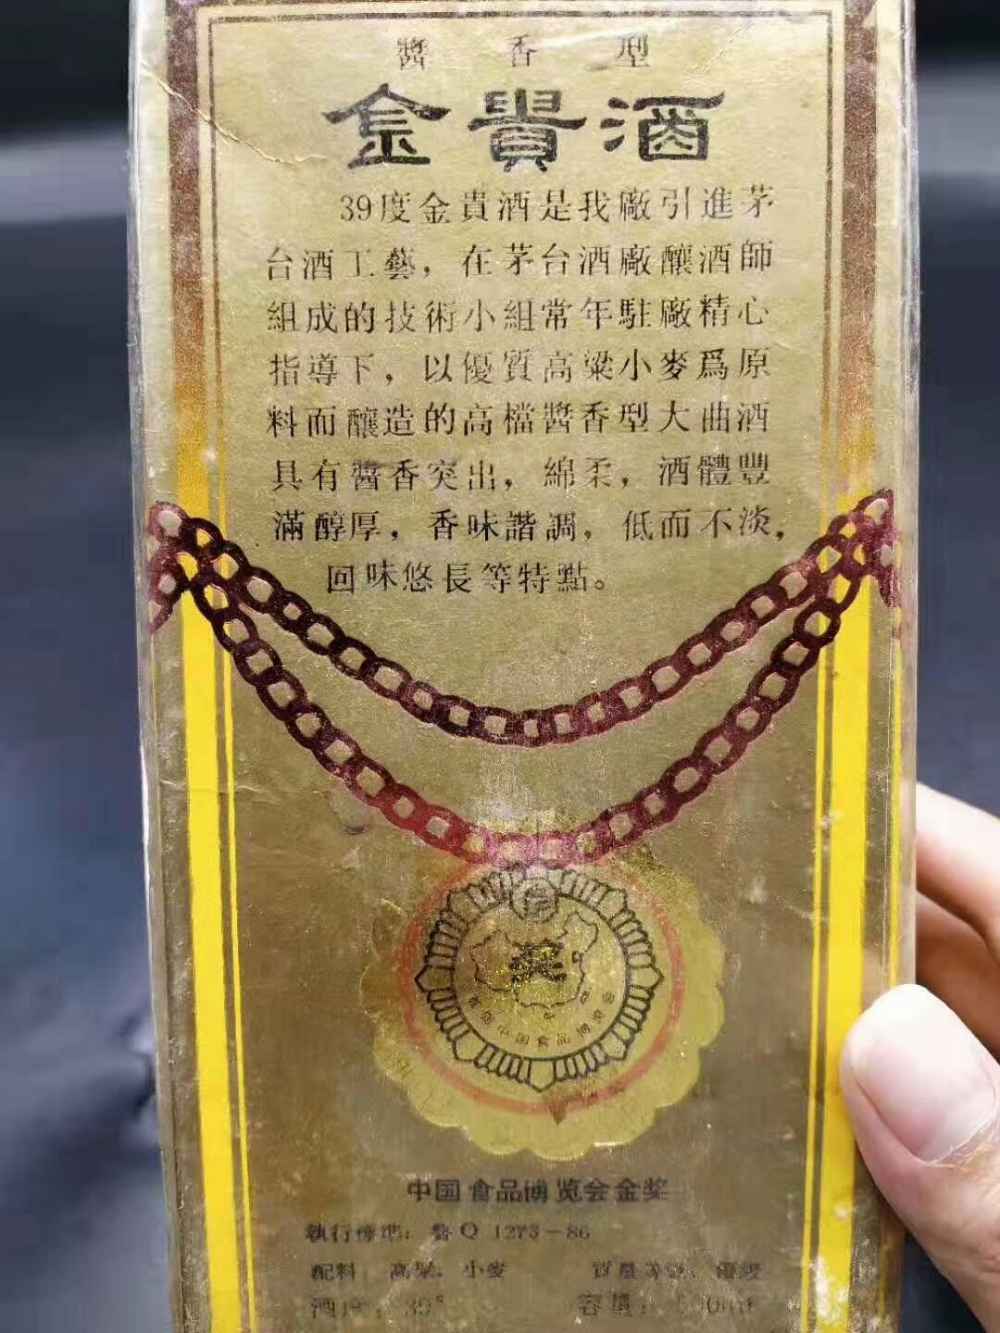 醬香型
金貴酒
39度金貴酒是我廠引進茅
台酒工藝，在茅台酒廠釀酒師
組成的技術小組常年駐廠精心
指導下，以優質高粱小麥爲原
料而釀造的高檔醬香型大曲酒
具有醬香突出，綿柔，酒體豐
滿醇厚，香味諧調，低而不淡，
回味悠長等特點。
奖
中国食品博览会
中国食品博览会金奖
執行標準：黔Q 1273-86
配料 高粱、小麥 質量等級：優級
酒度：39° 容量：500ml